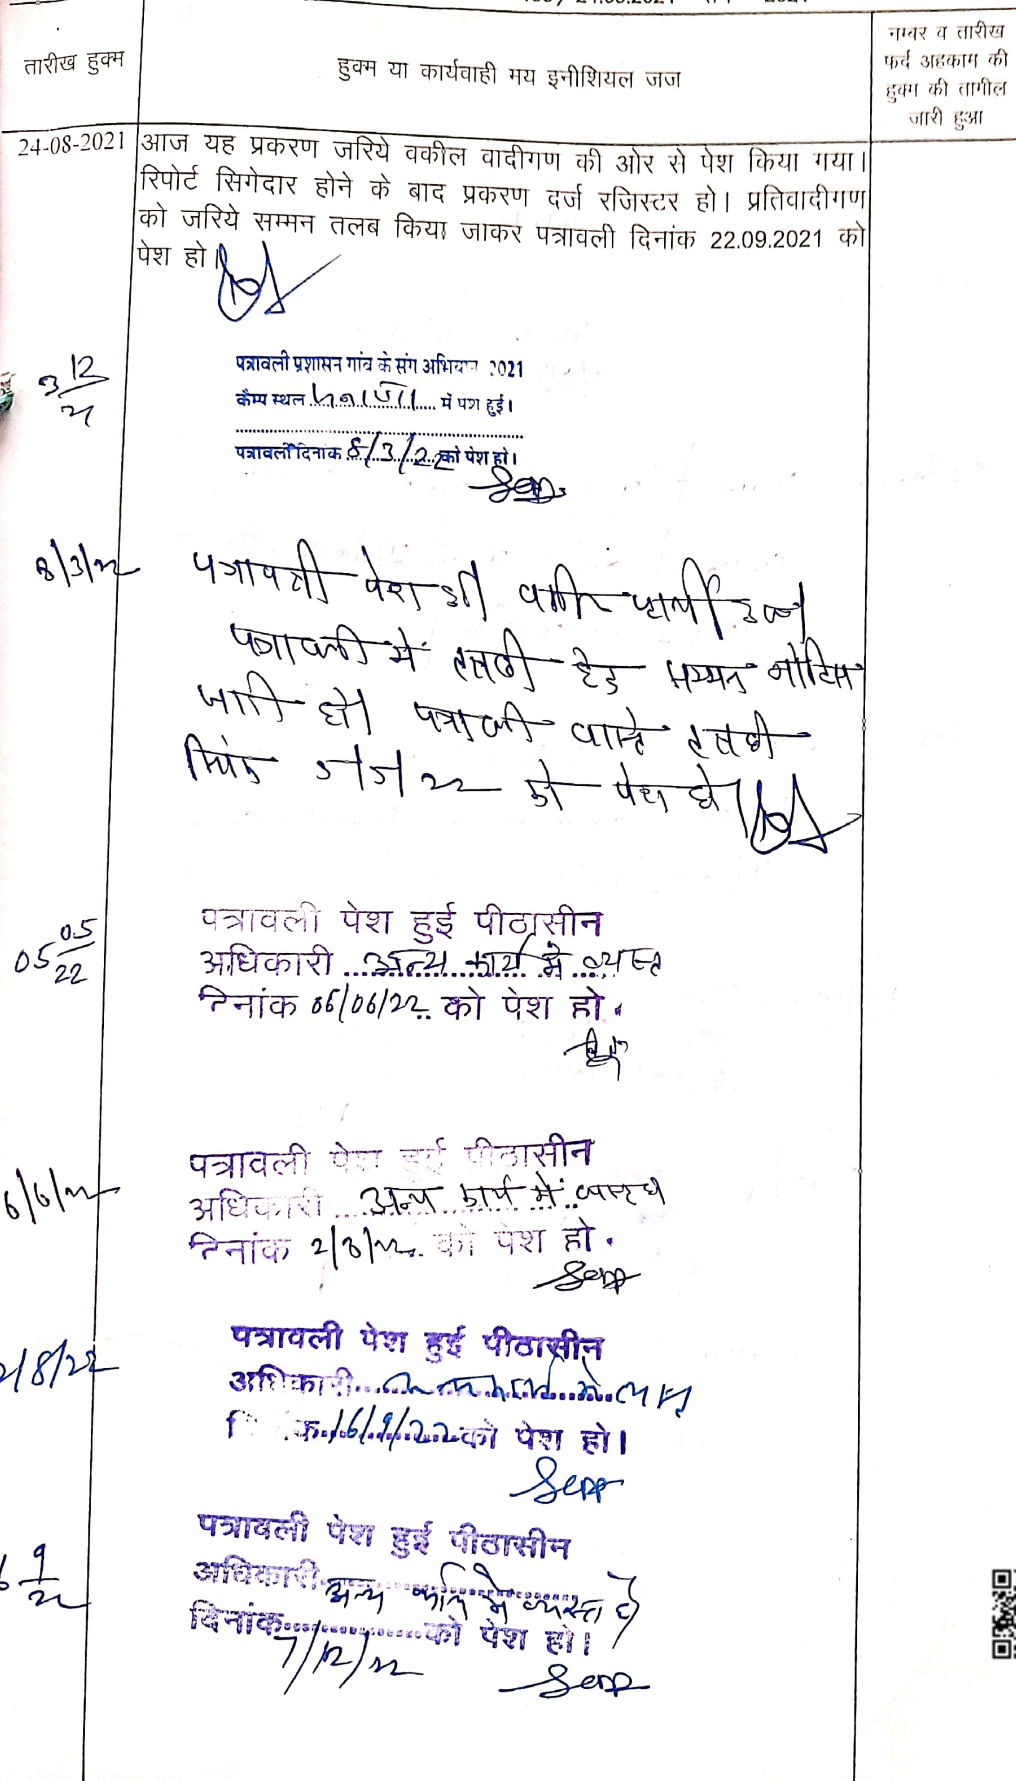 तारीख हुक्म
हुक्म या कार्यवाही मय इनीशियल जज
नम्बर व तारीख
फर्द अहकाम की
हुक्म की तामील
जारी हुआ
24-08-2021
आज यह प्रकरण जरिये वकील वादीगण की ओर से पेश किया गया।
रिपोर्ट सिगेदार होने के बाद प्रकरण दर्ज रजिस्टर हो। प्रतिवादीगण
को जरिये सम्मन तलब किया जाकर पत्रावली दिनांक 22.09.2021 को
पेश हो।
3 12/21
पत्रावली प्रशासन गांव के संग अभियान 2021
कैम्प स्थल में पेश हुई।
पत्रावली दिनांक 8/3/22 को पेश हो।
8/3/22
पत्रावली पेश हुई
पत्रावली में तलबी हेतु सम्मन नोटिस
जारी हो। पत्रावली वास्ते तलबी
दिनांक 5/5/22 को पेश हो।
05 05/22
पत्रावली पेश हुई पीठासीन
अधिकारी अन्य कार्य मे व्यस्त
दिनांक 06/06/22 को पेश हो.
6/6/22
पत्रावली पेश हुई पीठासीन
अधिकारी अन्य कार्य में व्यस्त है
दिनांक 2/8/22 को पेश हो.
2/8/22
पत्रावली पेश हुई पीठासीन
अधिकारी अन्य कार्य मे व्यस्त
क 16/9/22 को पेश हो।
6 9/22
पत्रावली पेश हुई पीठासीन
अधिकारी अन्य कार्य मे व्यस्त है
दिनांक को पेश हो।
7/12/22